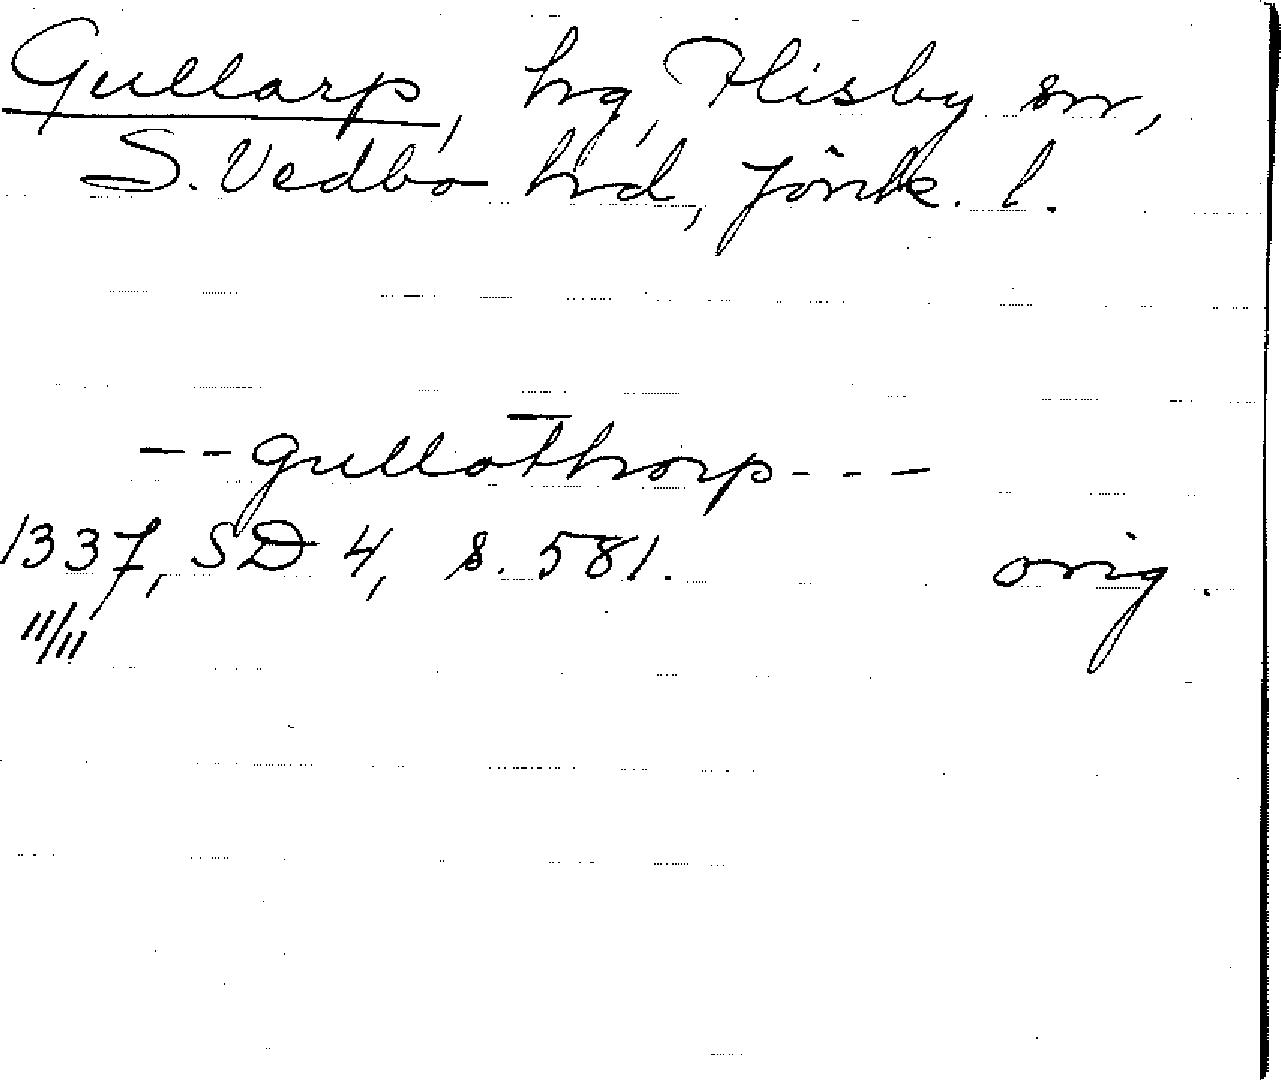 Gullarp, hg, Flisby sn,
S. Vedbo hd, Jönk. l.
-- gullathorp ---
1337, SD 4, s. 581. orig.
11/11